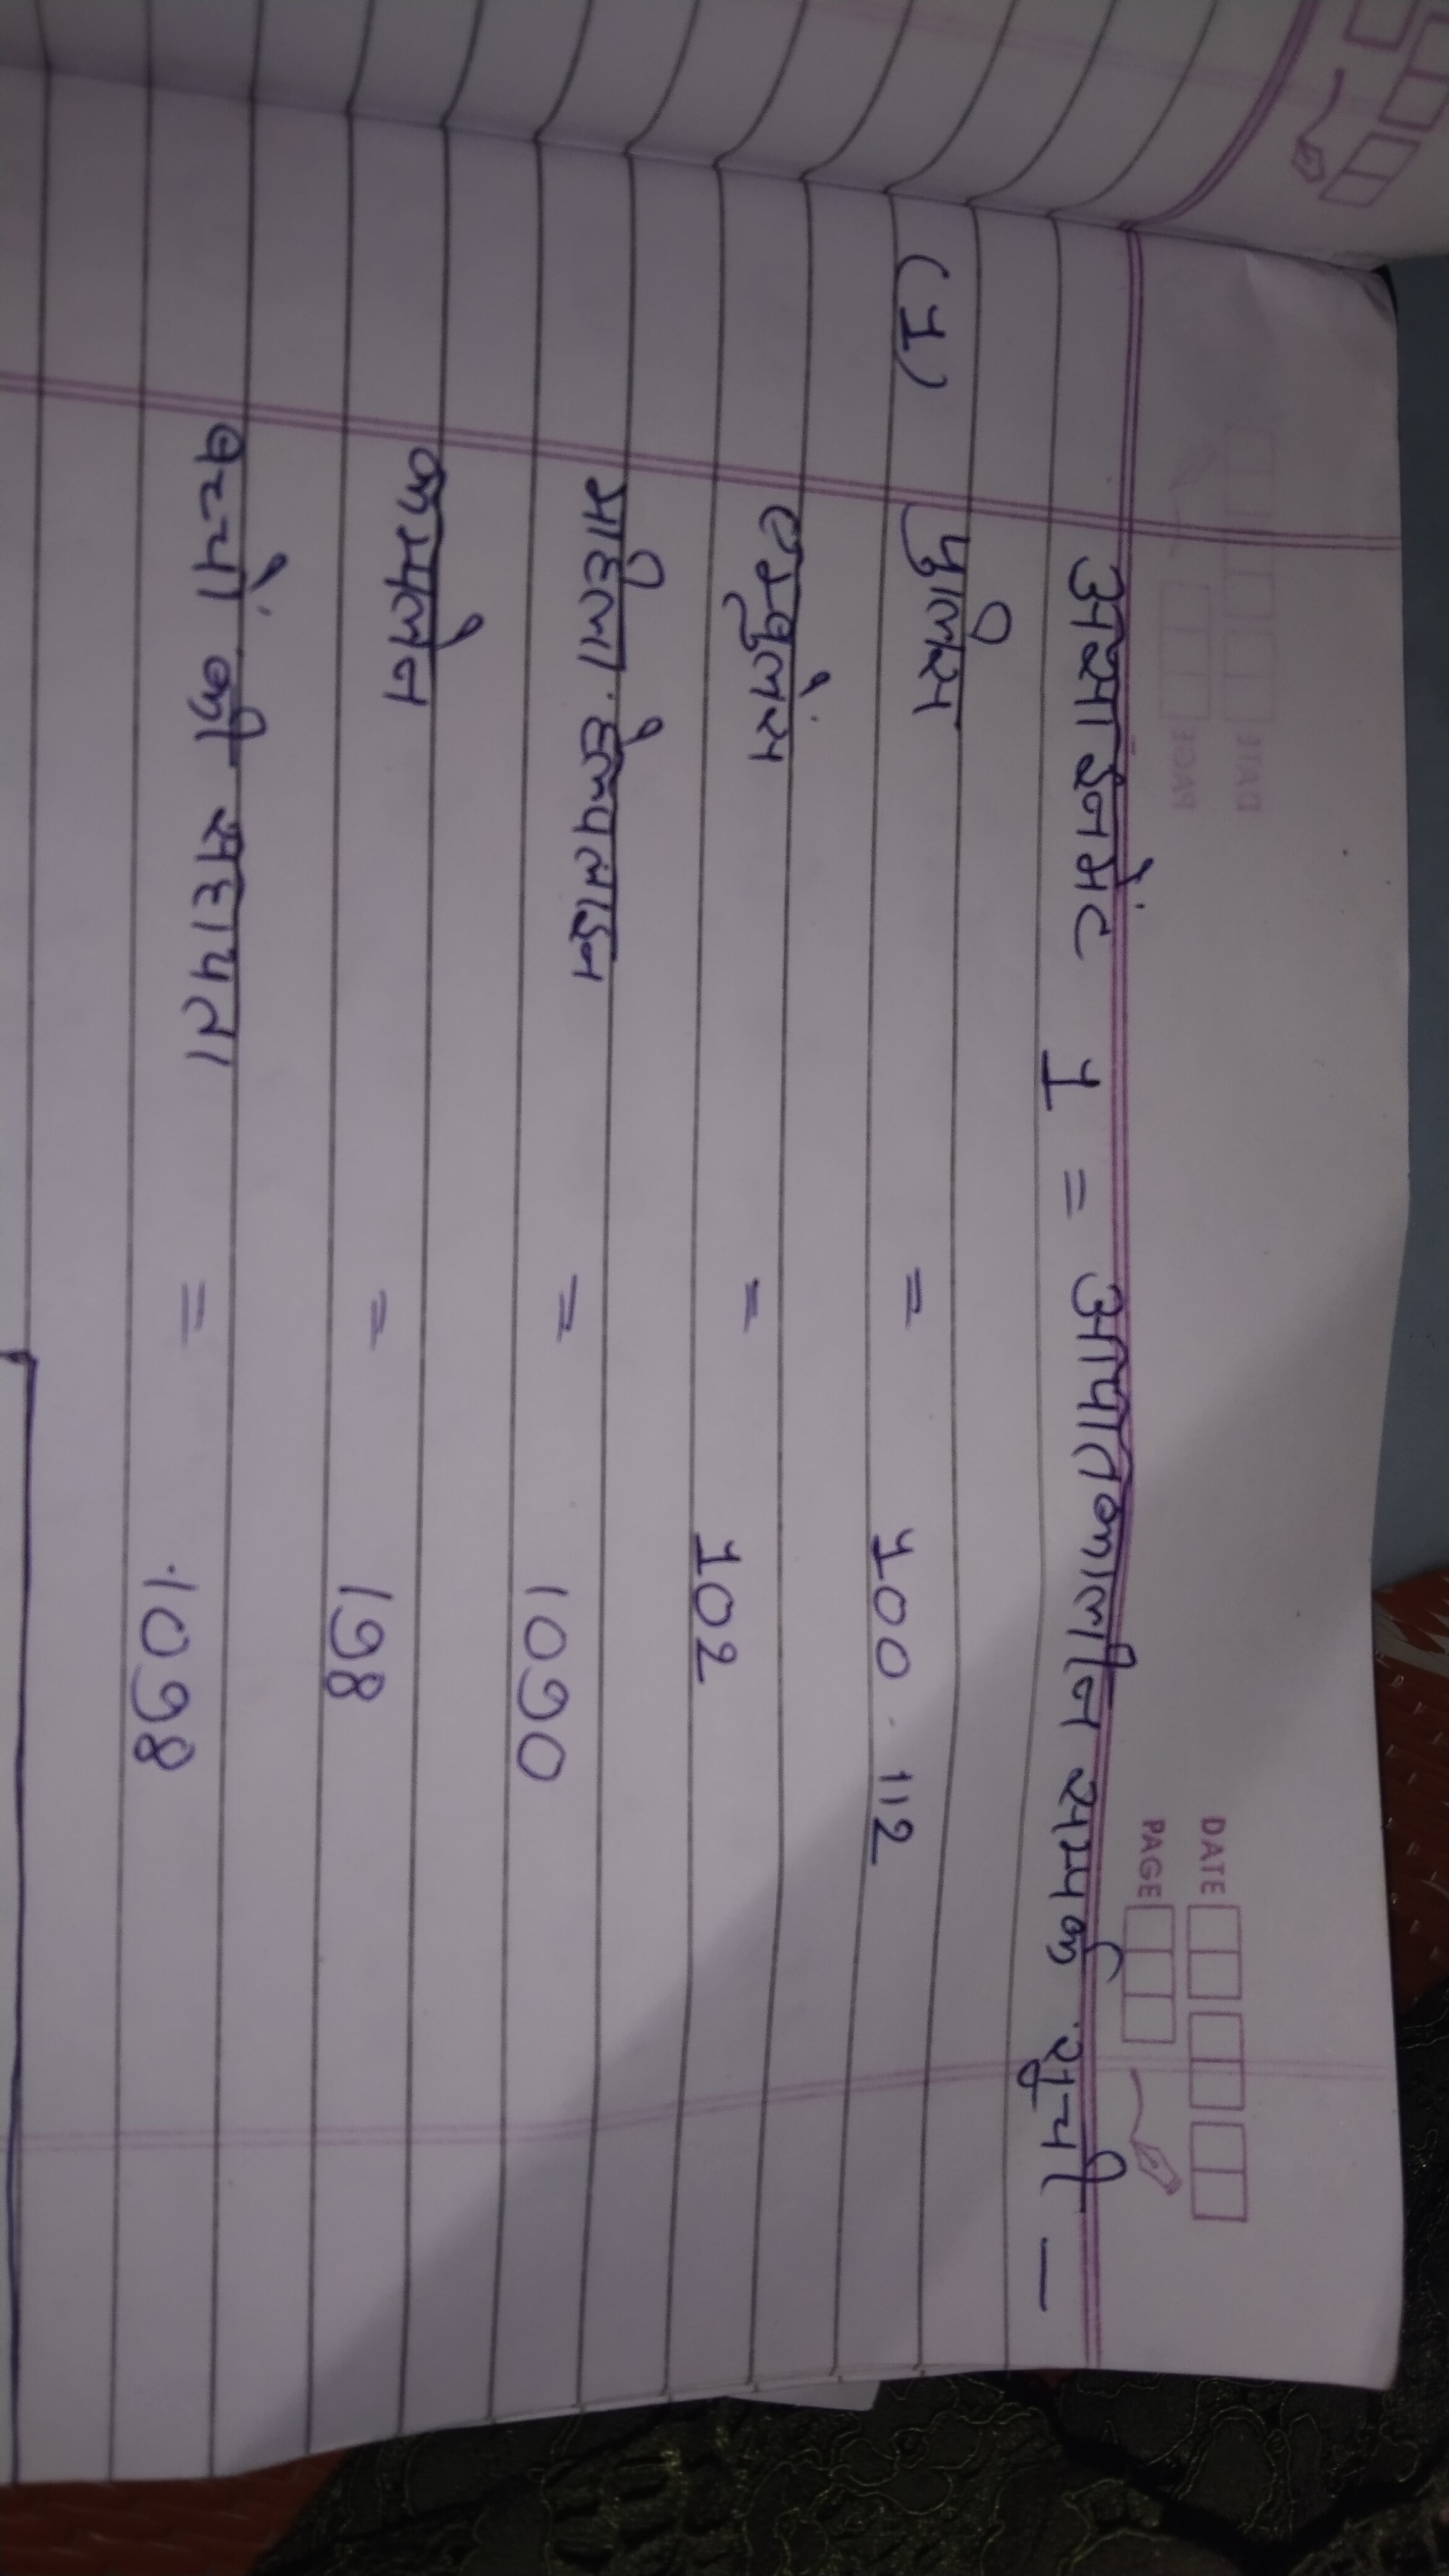 DATE
PAGE
असाईनमेंट 1 = आपातकालीन सम्पर्क सूची —
(1) पुलिस = 100 112
एम्बुलेंस = 102
महिला हेल्पलाइन = 1090
कम्पलेन = 198
बच्चों की सहायता = 1098